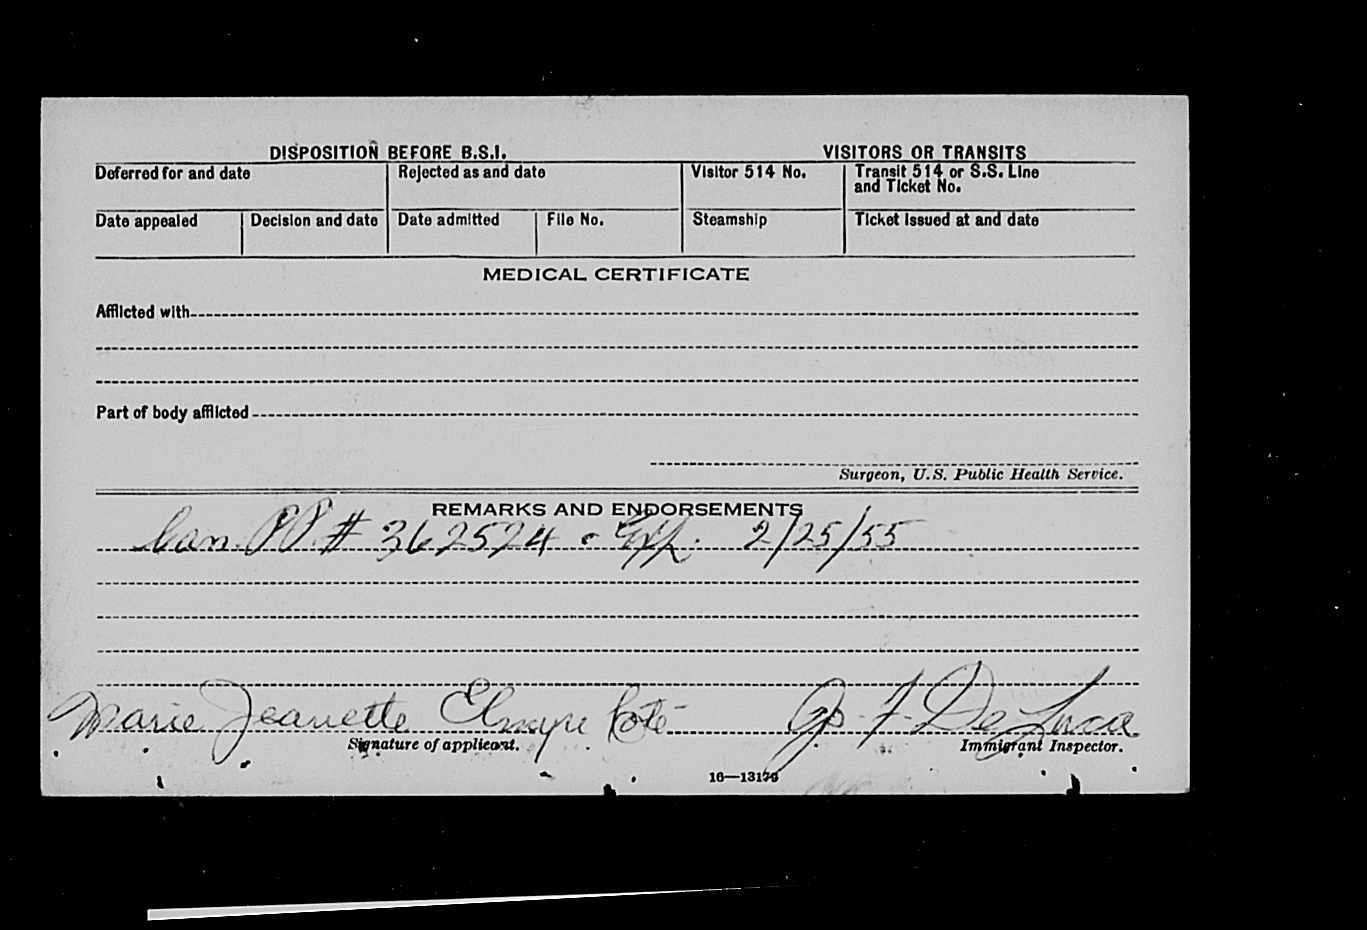 DISPOSITION BEFORE B.S.I. VISITORS OR TRANSITS
Deferred for and date Rejected as and date Visitor 514 No. Transit 514 or S.S. Line
and Ticket No.
Date appealed Decision and date Date admitted File No. Steamship Ticket issued at and date
MEDICAL CERTIFICATE
Afflicted with
Part of body afflicted
Surgeon, U.S. Public Health Service.
REMARKS AND ENDORSEMENTS
Can. PP # 362524 - Exp. 2/25/55
Marie Jeanette Elmyre Coté F. De Luca
Signature of applicant. Immigrant Inspector.
16—13179